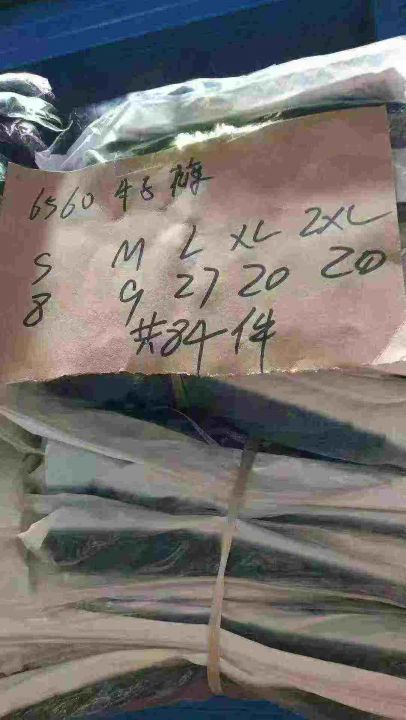 6560 4号
S M L XL 2XL
8 9 27 20 20
共84件